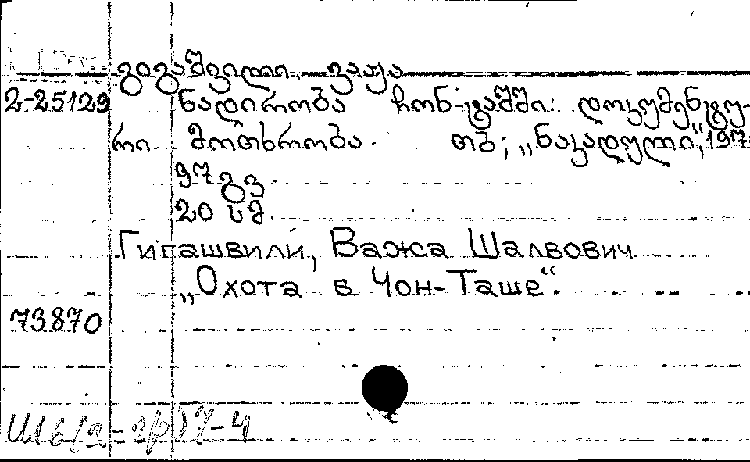 გიგაშვილი, ვაჟა
2-25129 ნადირობა ჩონ-ტაშში: დოკუმენტუ-
რი მოთხრობა. თბ; „ნაკადული“, 197
97 გვ.
20 სმ.
Гигашвили, Важа Шалвович
„Охота в Чон-Таше“.
73870